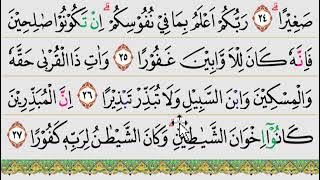 صَغِيْرًا ۞ ﴿٢٤﴾ رَبُّكُمْ اَعْلَمُ بِمَا فِيْ نُفُوْسِكُمْ ۚ اِنْ تَكُوْنُوْا صٰلِحِيْنَ
فَاِنَّهٗ كَانَ لِلْاَوَّابِيْنَ غَفُوْرًا ﴿٢٥﴾ وَاٰتِ ذَا الْقُرْبٰى حَقَّهٗ
وَالْمِسْكِيْنَ وَابْنَ السَّبِيْلِ وَلَا تُبَذِّرْ تَبْذِيْرًا ﴿٢٦﴾ اِنَّ الْمُبَذِّرِيْنَ
كَانُوْۤا اِخْوَانَ الشَّيٰطِيْنِ ۚ وَكَانَ الشَّيْطٰنُ لِرَبِّهٖ كَفُوْرًا ﴿٢٧﴾